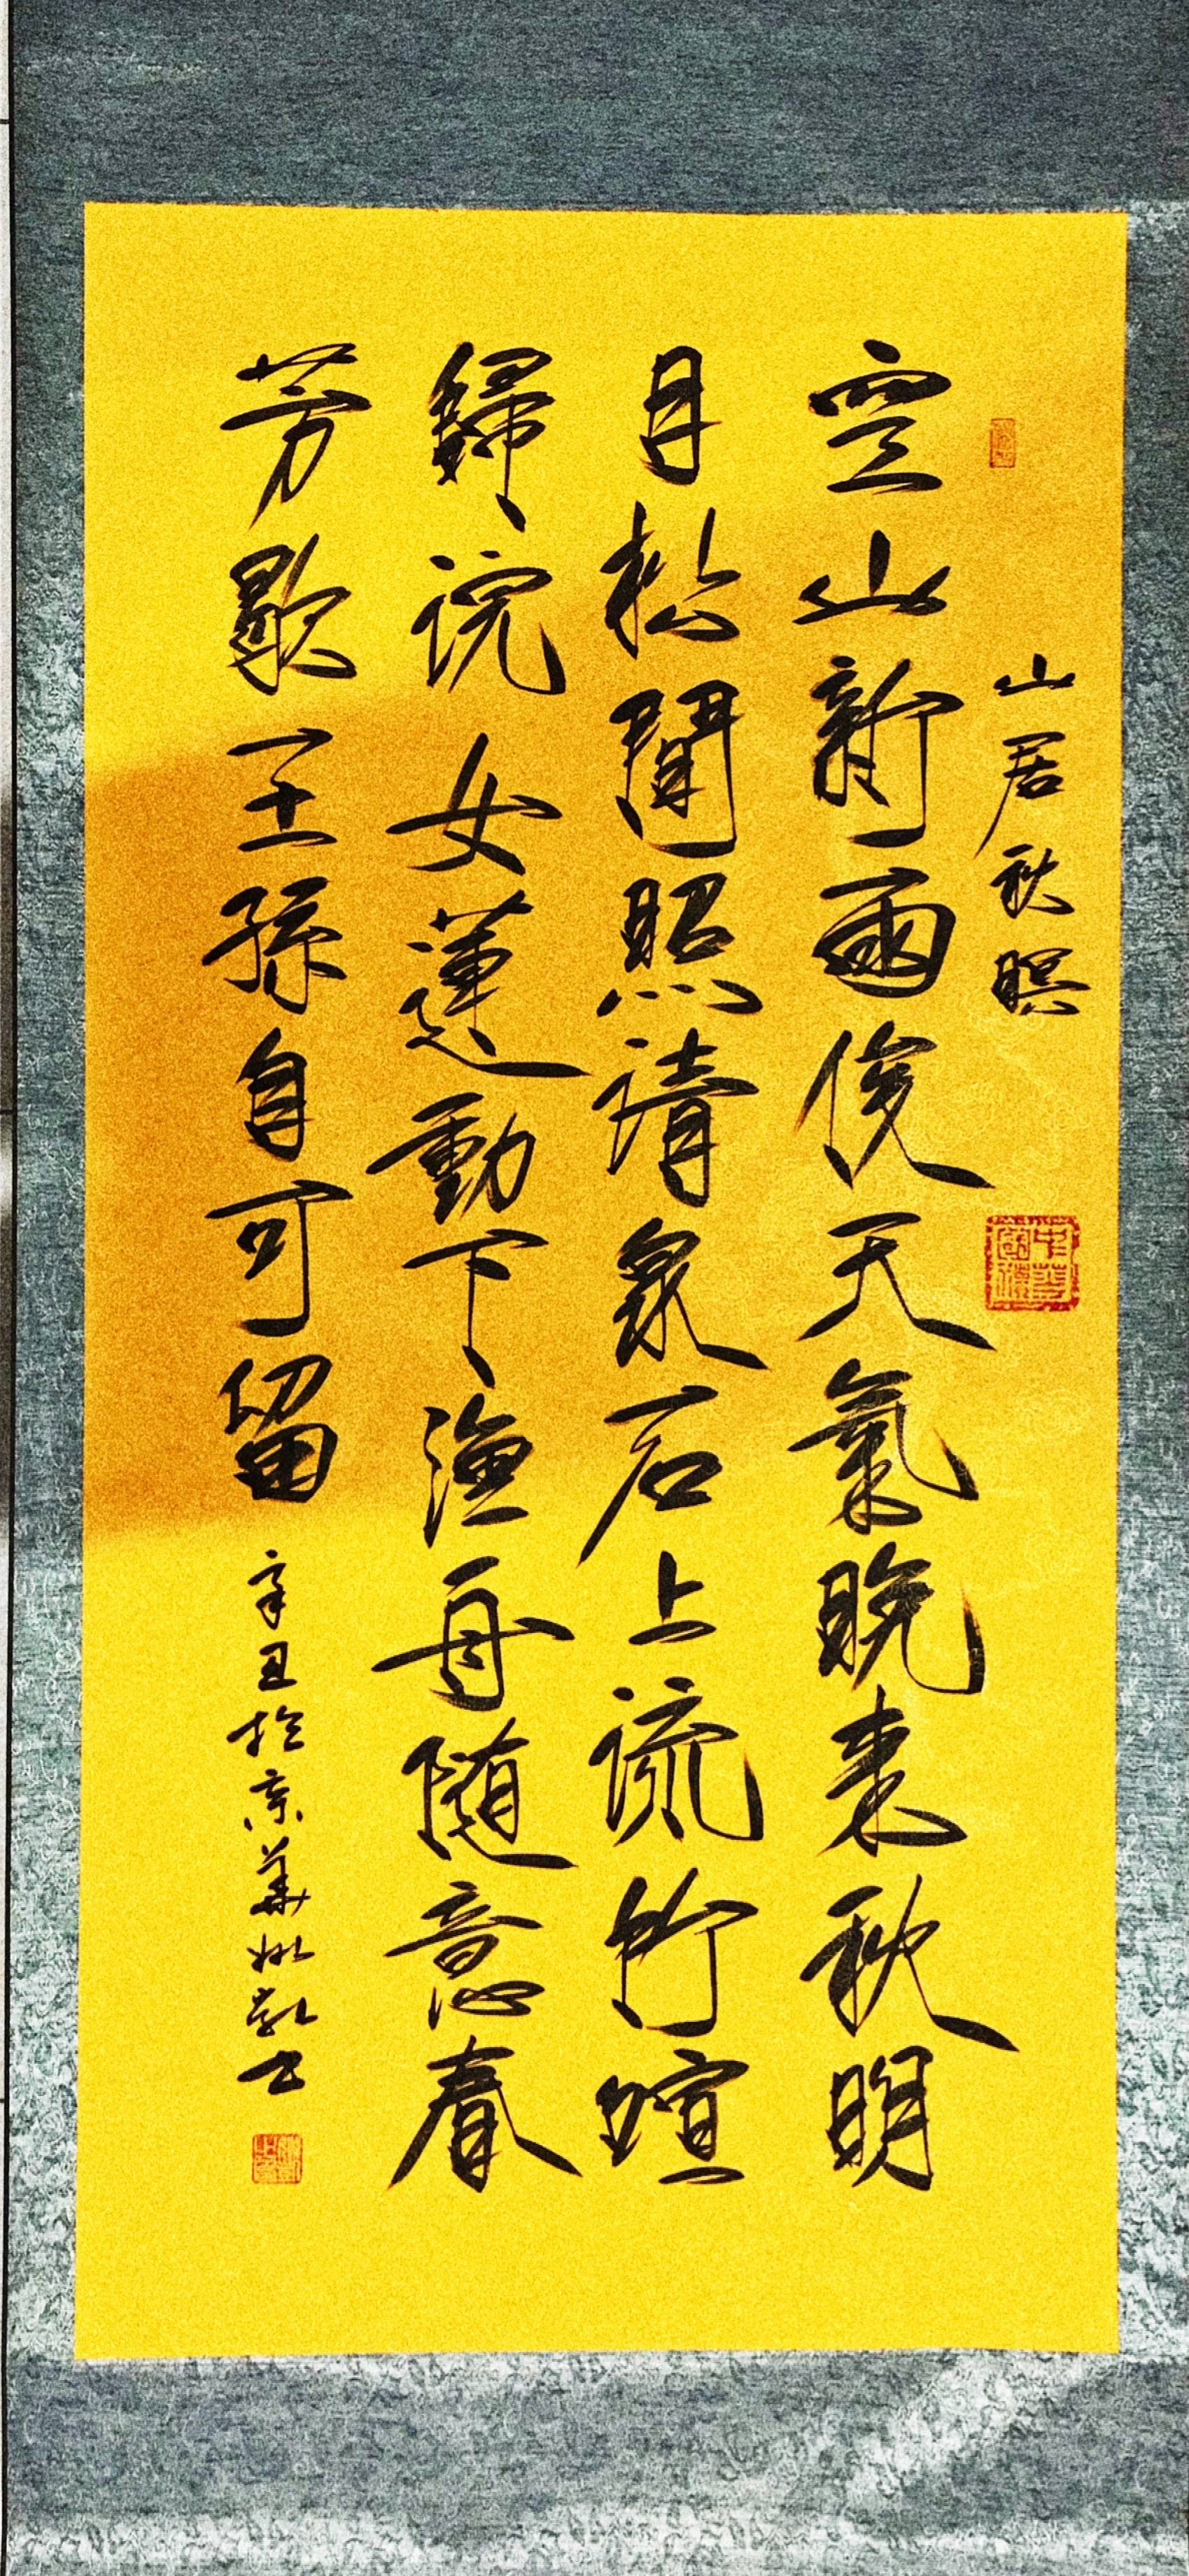 山居秋暝
空山新雨後天氣晚来秋明
月松間照清泉石上流竹喧
歸浣女蓮動下漁舟随意春
芳歇王孫自可留
辛丑於京華